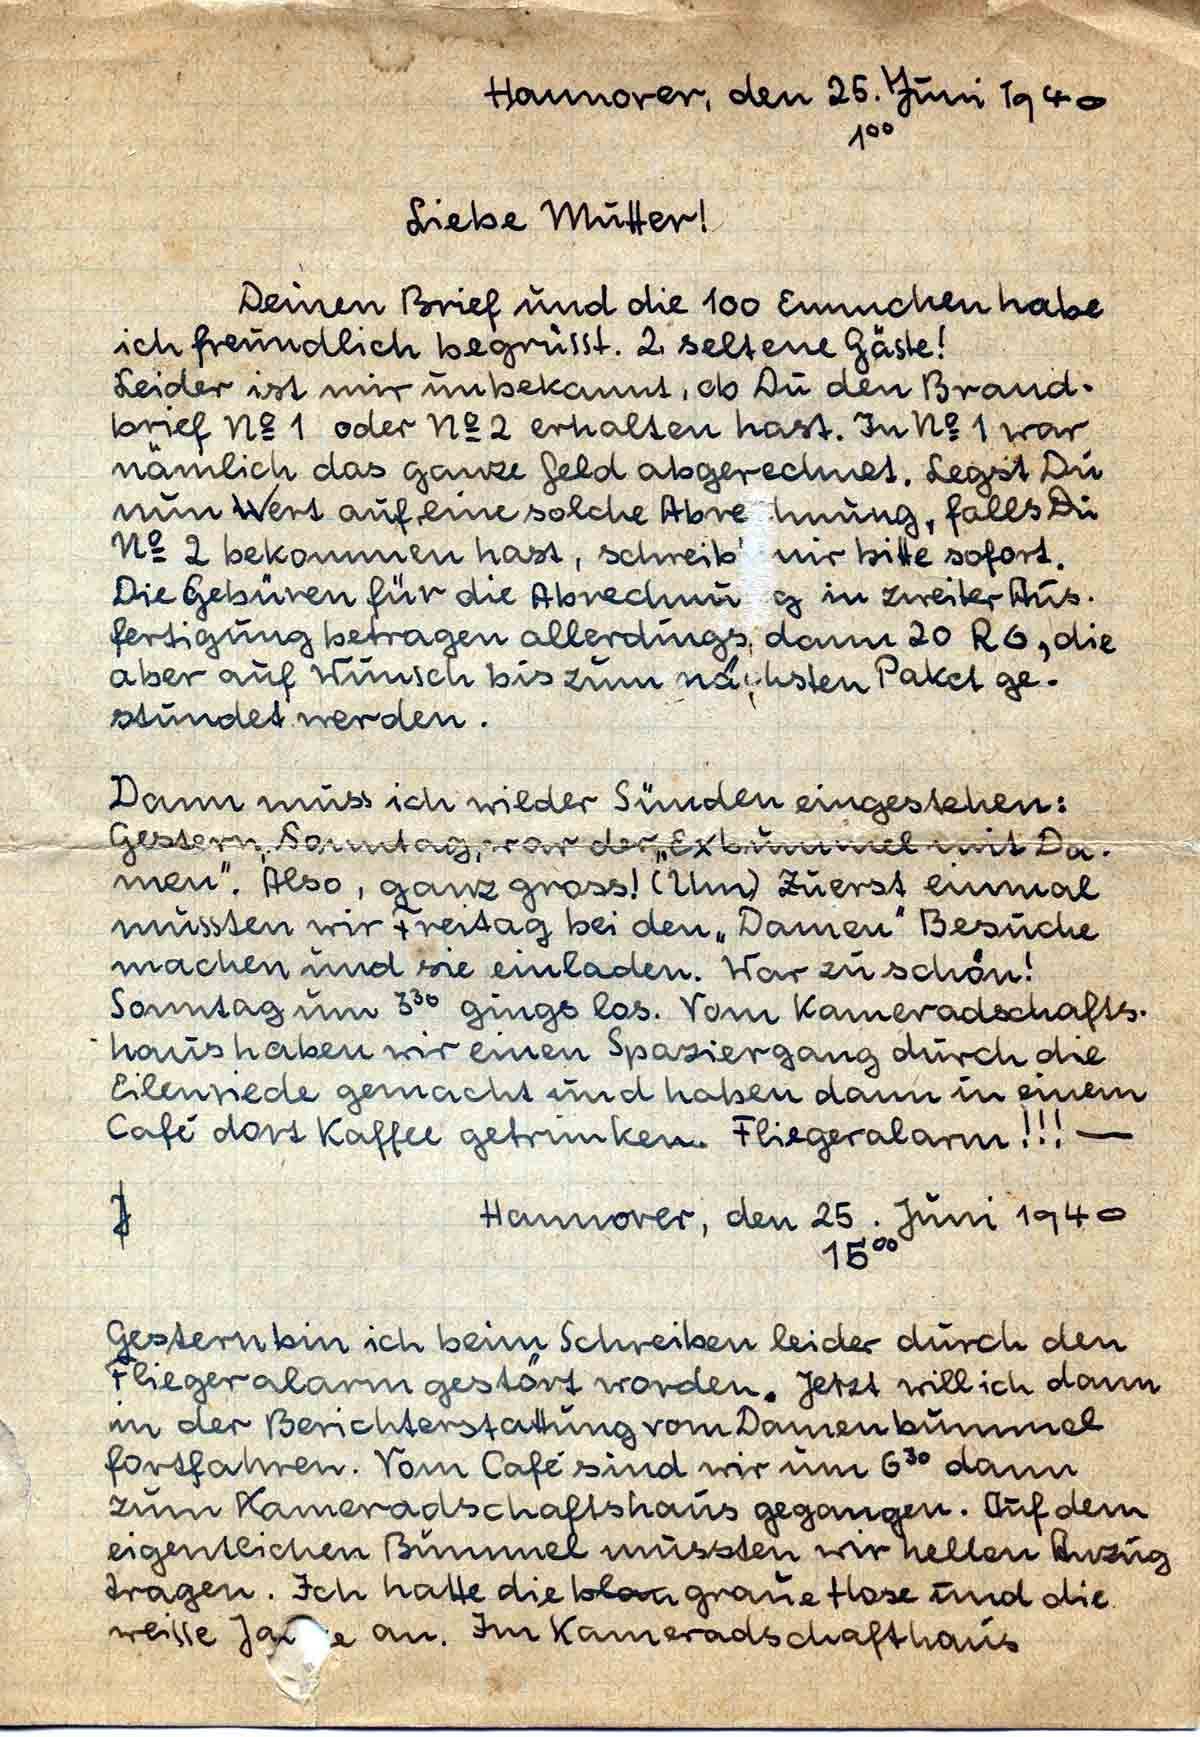 Hannover, den 25. Juni 1940
1⁰⁰
Liebe Mutter!
Deinen Brief und die 100 Emmchen habe
ich freundlich begrüsst. 2 seltene Gäste!
Leider ist mir unbekannt, ob Du den Brand-
brief No 1 oder No 2 erhalten hast. In No 1 war
nämlich das ganze Geld abgerechnet. Legst Du
nun Wert auf eine solche Abre hnung, falls Du
No 2 bekommen hast, schreib' mir bitte sofort.
Die Gebüren für die Abrechnu g in zweiter Aus-
fertigung betragen allerdings dann 20 RG, die
aber auf Wunsch bis zum nächsten Paket ge-
stundet werden.
Dann muss ich wilder Sünden eingestehen:
Gestern, Sonntag, war der „Exbummel mit Da-
men". Also, ganz gross! (Um) Zuerst einmal
mussten wir Freitag bei den „Damen" Besuche
machen und sie einladen. War zu schön!
Sonntag um 3³⁰ gings los. Vom Kameradschafts-
haus haben wir einen Spaziergang durch die
Eilenriede gemacht und haben dann in einem
Café dort Kaffee getrunken. Fliegeralarm!!! —
Hannover, den 25. Juni 1940
15⁰⁰
Gestern bin ich beim Schreiben leider durch den
Fliegeralarm gestört worden. Jetzt will ich dann
in der Berichterstattung vom Damenbummel
fortfahren. Vom Café sind wir um 6³⁰ dann
zum Kameradschaftshaus gegangen. Auf dem
eigentlichen Bummel mussten wir hellen Anzug
tragen. Ich hatte die blau graue Hose und die
weisse Ja e an. Im Kameradschafthaus